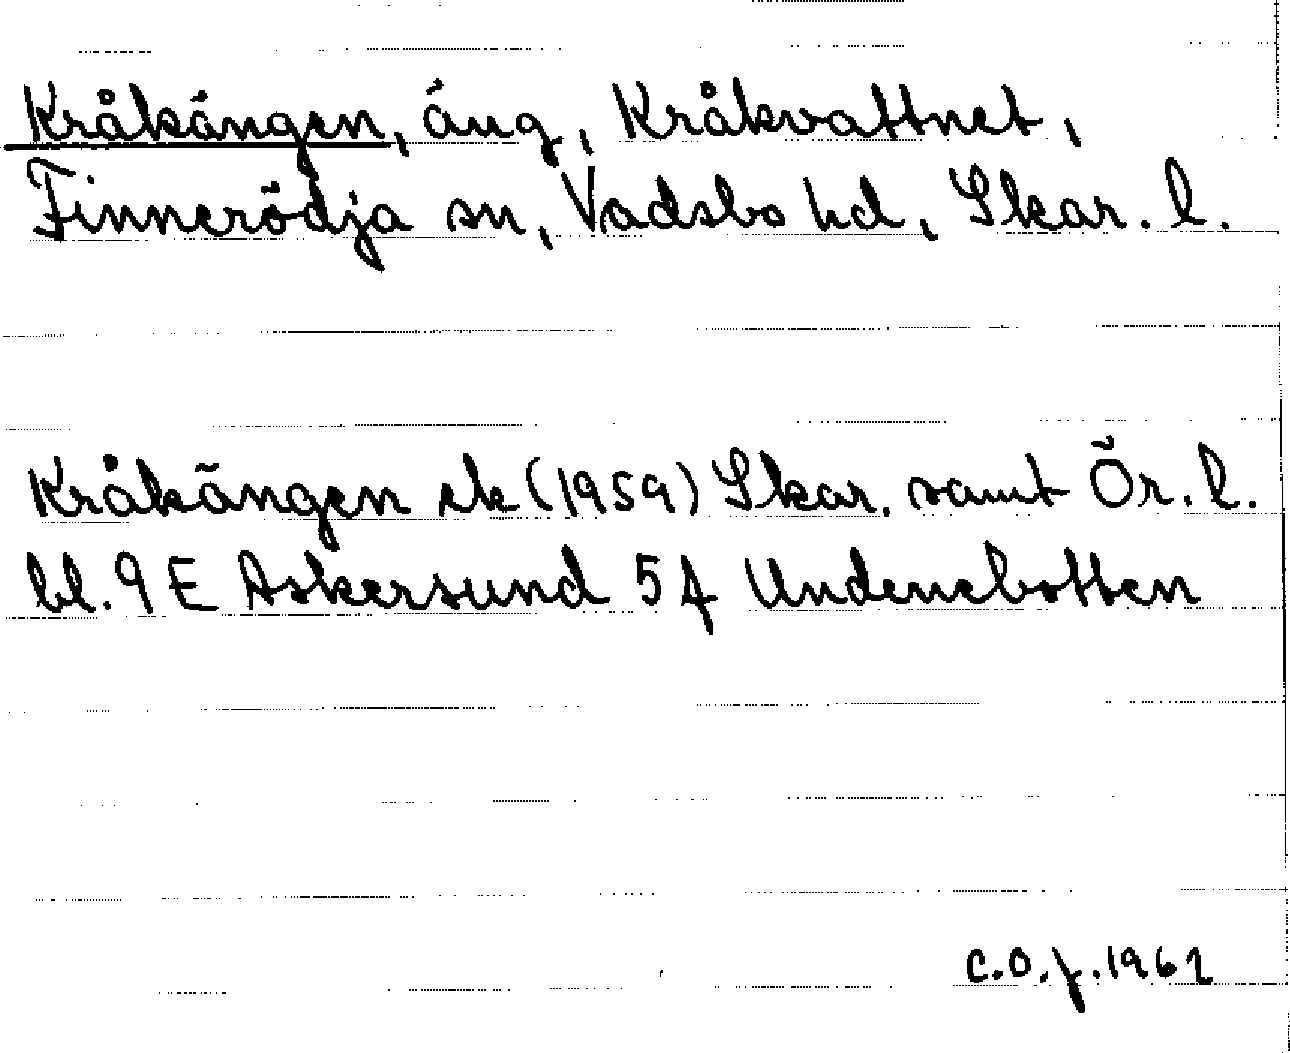 Kråkängen, äng, Kråkvattnet,
Finnerödja sn, Vadsbo hd, Skar. l.
Kråkängen ek (1959) Skar. samt Ör. l.
bl. 9 E Askersund 5 f Undenebotten
C.O.f. 1962